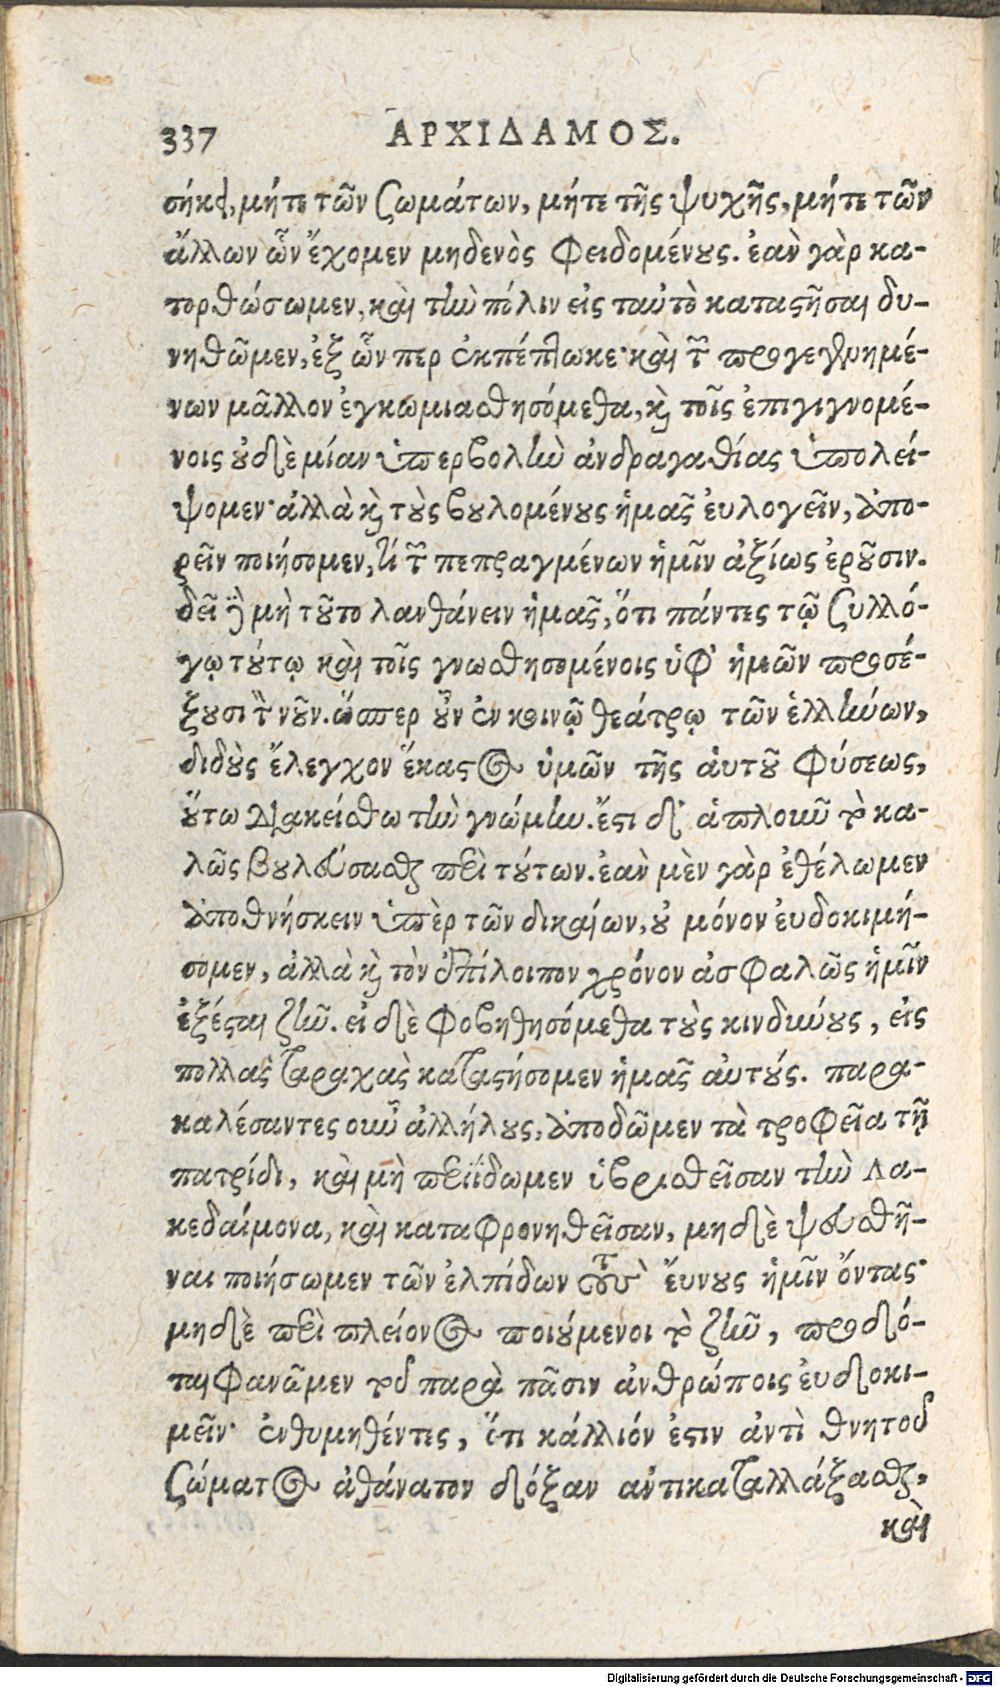 337 ΑΡΧΙΔΑΜΟΣ.
σήκει, μήτε τῶν σωμάτων, μήτε τῆς ψυχῆς, μήτε τῶν
ἄλλων ὧν ἔχομεν μηδενὸς φειδομένους. ἐὰν γὰρ κα-
τορθώσωμεν, καὶ τὴν πόλιν εἰς ταὐτὸ καταστῆσαι δυ-
νηθῶμεν, ἐξ ὧν περ ἐκπέπτωκε· καὶ τῶν προγεγενημέ-
νων μᾶλλον ἐγκωμιασθησόμεθα, καὶ τοῖς ἐπιγιγνομέ-
νοις οὐδὲ μίαν ὑπερβολὴν ἀνδραγαθίας ὑπολεί-
ψομεν· ἀλλὰ καὶ τοὺς βουλομένους ἡμᾶς εὐλογεῖν, ἀπο-
ρεῖν ποιήσομεν, τί τῶν πεπραγμένων ἡμῖν ἀξίως ἐροῦσιν.
δεῖ δὲ μὴ τοῦτο λανθάνειν ἡμᾶς, ὅτι πάντες τῷ συλλό-
γῳ τούτῳ καὶ τοῖς γνωσθησομένοις ὑφ' ἡμῶν προσέ-
ξουσι τὸν νοῦν. ὥσπερ οὖν ἐν κοινῷ θεάτρῳ τῶν ἑλλήνων,
διδοὺς ἔλεγχον ἕκαστος ὑμῶν τῆς αὑτοῦ φύσεως,
οὕτω διακείσθω τὴν γνώμην. ἔστι δ' ἁπλοῦν τὸ κα-
λῶς βουλεύσασθαι περὶ τούτων. ἐὰν μὲν γὰρ ἐθέλωμεν
ἀποθνήσκειν ὑπὲρ τῶν δικαίων, οὐ μόνον εὐδοκιμή-
σομεν, ἀλλὰ καὶ τὸν ἐπίλοιπον χρόνον ἀσφαλῶς ἡμῖν
ἐξέσται ζῆν. εἰ δὲ φοβηθησόμεθα τοὺς κινδύνους, εἰς
πολλὰς ταραχὰς καταστήσομεν ἡμᾶς αὐτούς. παρα-
καλέσαντες οὖν ἀλλήλους, ἀποδῶμεν τὰ τροφεῖα τῇ
πατρίδι, καὶ μὴ περιίδωμεν ὑβρισθεῖσαν τὴν Λα-
κεδαίμονα, καὶ καταφρονηθεῖσαν, μηδὲ ψευσθῆ-
ναι ποιήσωμεν τῶν ἐλπίδων τοὺς εὔνους ἡμῖν ὄντας·
μηδὲ περὶ πλείονος ποιούμενοι τὸ ζῆν, προδό-
ται φανῶμεν τοῦ παρὰ πᾶσιν ἀνθρώποις εὐδοκι-
μεῖν· ἐνθυμηθέντες, ὅτι κάλλιόν ἐστιν ἀντὶ θνητοῦ
σώματος ἀθάνατον δόξαν ἀντικαταλλάξασθαι,
καὶ
Digitalisierung gefördert durch die Deutsche Forschungsgemeinschaft - DFG